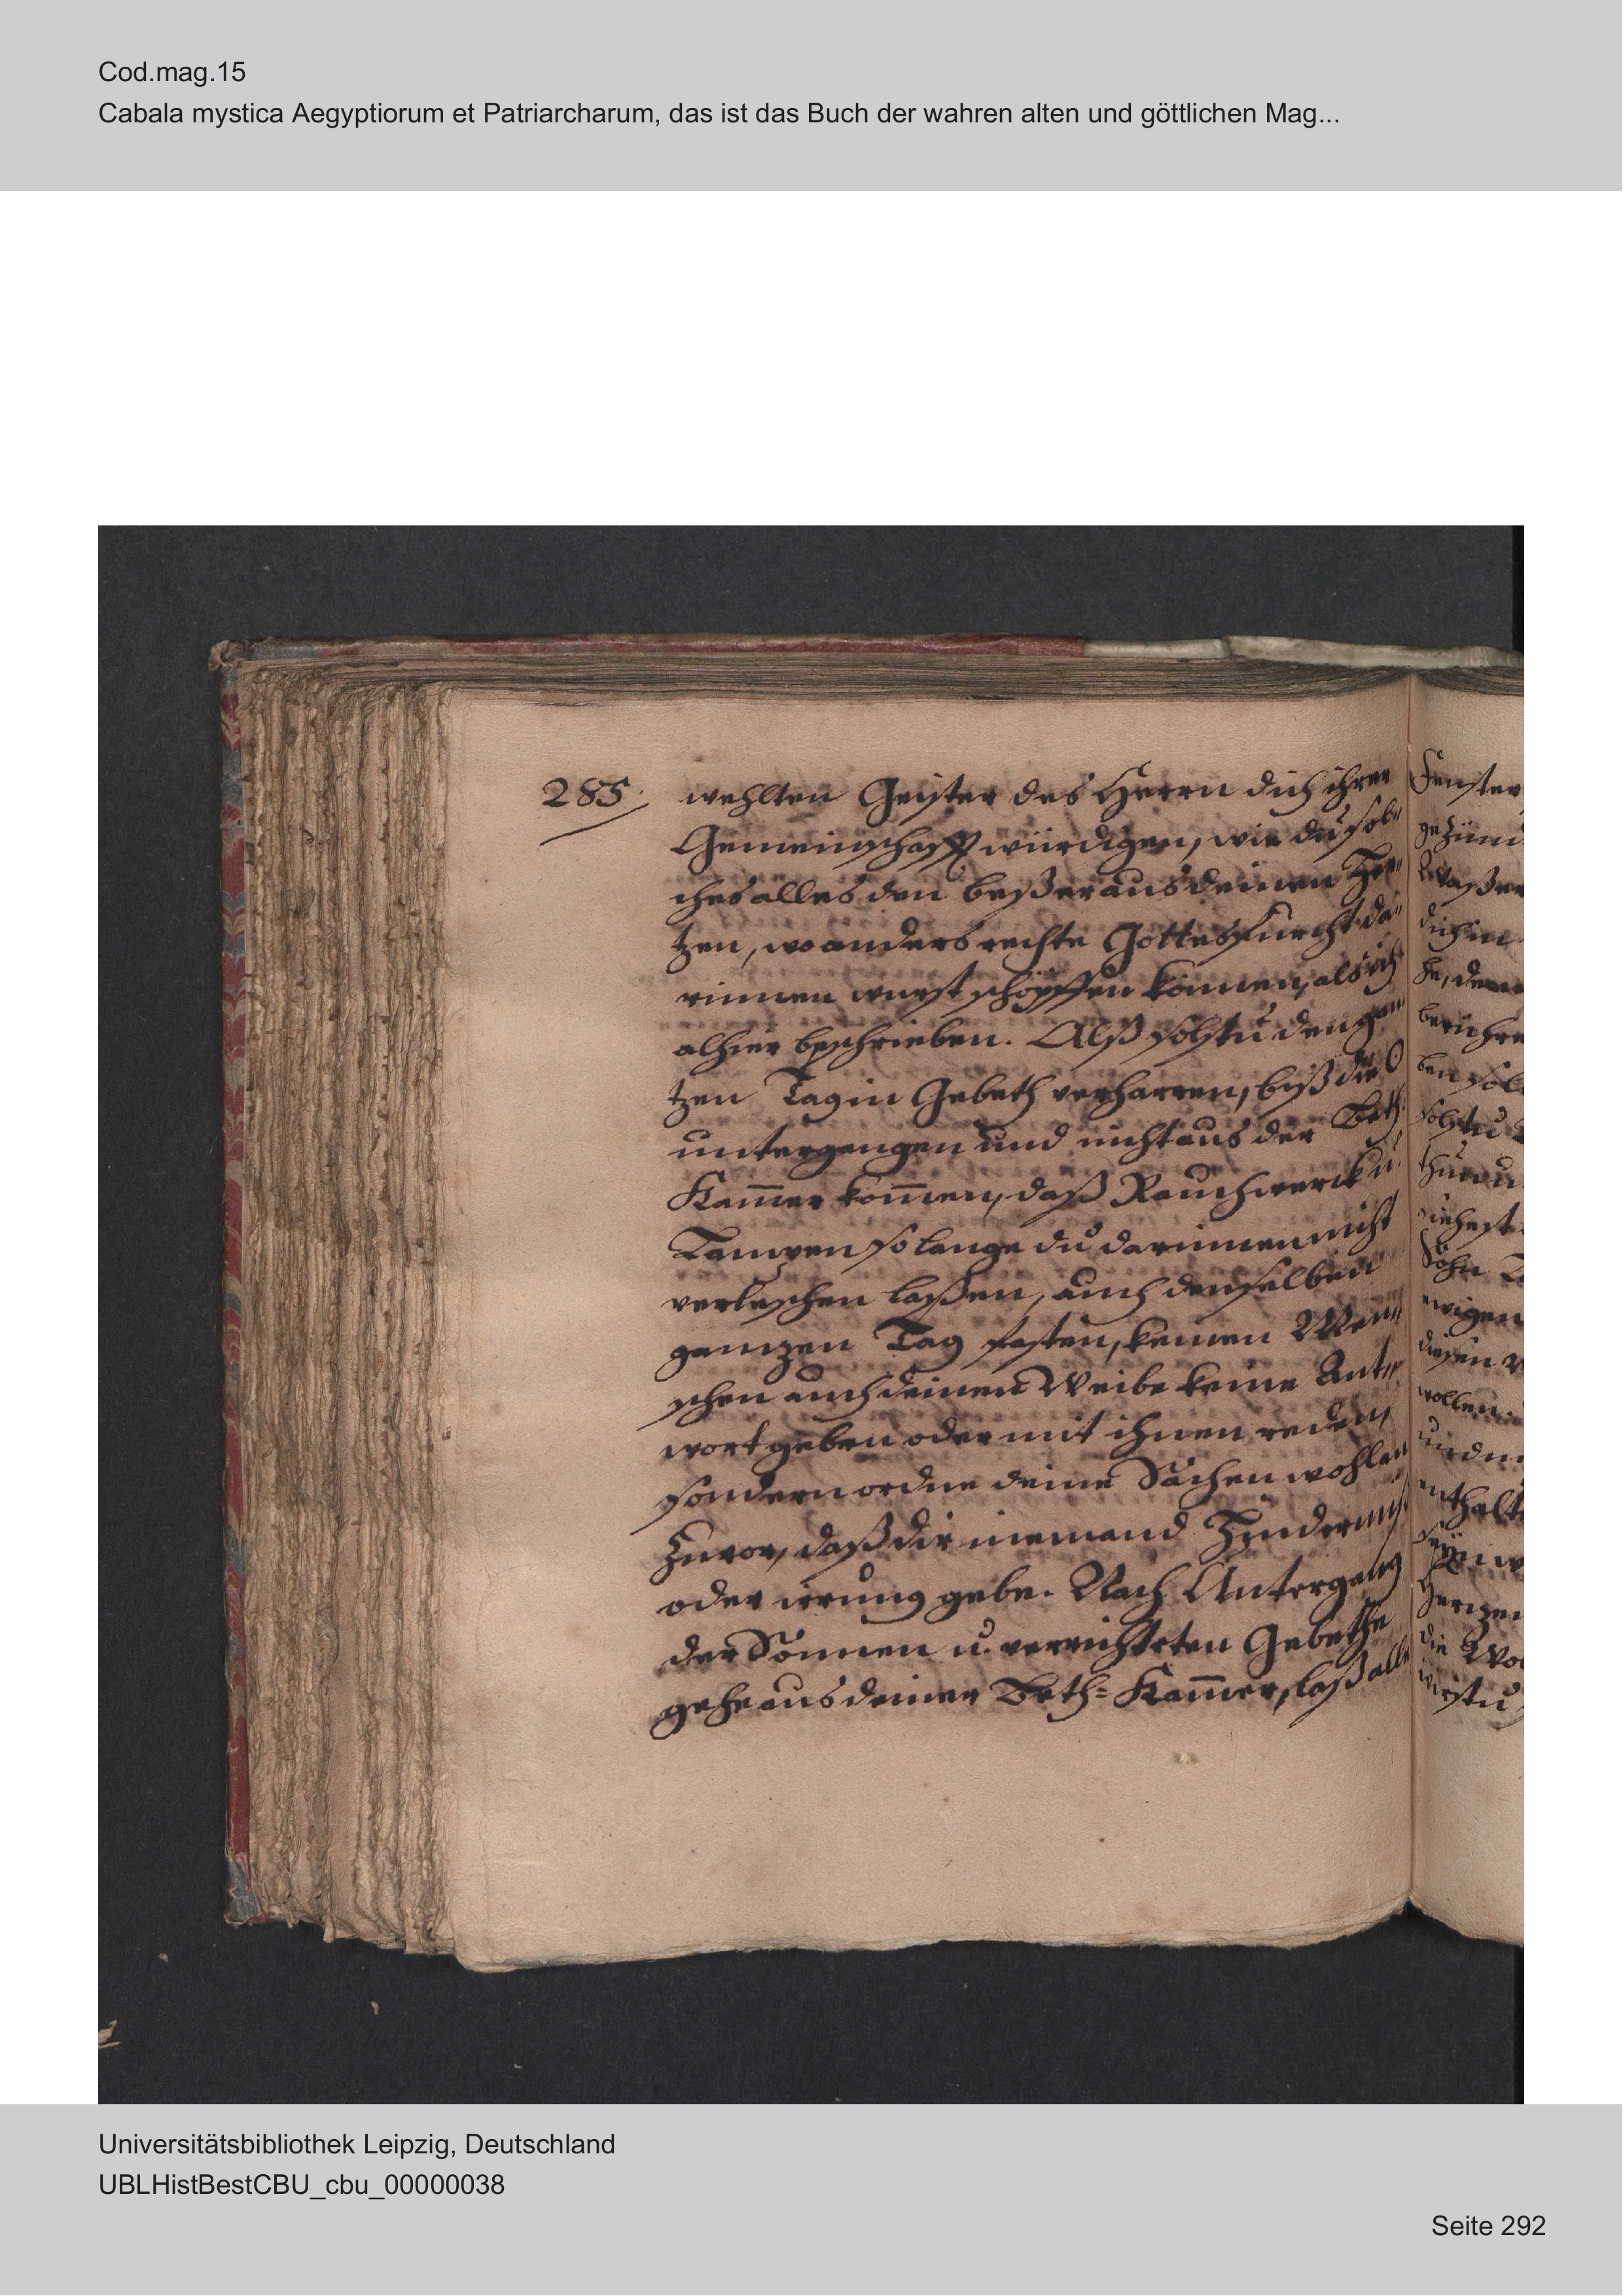 Cod.mag.15
Cabala mystica Aegyptiorum et Patriarcharum, das ist das Buch der wahren alten und göttlichen Mag...
285.
wehlten Geister des Herrn dich ihrer
Gemeinschafft würdigen, wie du sol„
ches alles den beßer aus deinen Her„
tzen, wo anders rechte Gottesfurcht da„
rinnen wurst schöpffen können, als ich
alhier beschrieben. Alß solstu den gan„
tzen Tag in Gebeth verharren, biß die ☉
untergangen und nicht aus der Beth
Kam̅er kom̅en, daß Rauchwerck u.
so lange du darinnen nicht
verleschen laßen, auch denselben
gantzen Tag fasten, keinen Men„
schen auch deinen Weibe keine Ant„
wort geben oder mit ihnen reden,
sondern ordne deine Sachen wohl an
zuvor, daß dir niemand Hindernuß
oder irrung gebe. Nach Untergang
der Sonnen u. verrichteten Gebethe
gehe aus deiner Beth= Kam̅er, laß alle
Fenster
dich in
ewigen
wollen.
Universitätsbibliothek Leipzig, Deutschland
UBLHistBestCBU_cbu_00000038
Seite 292